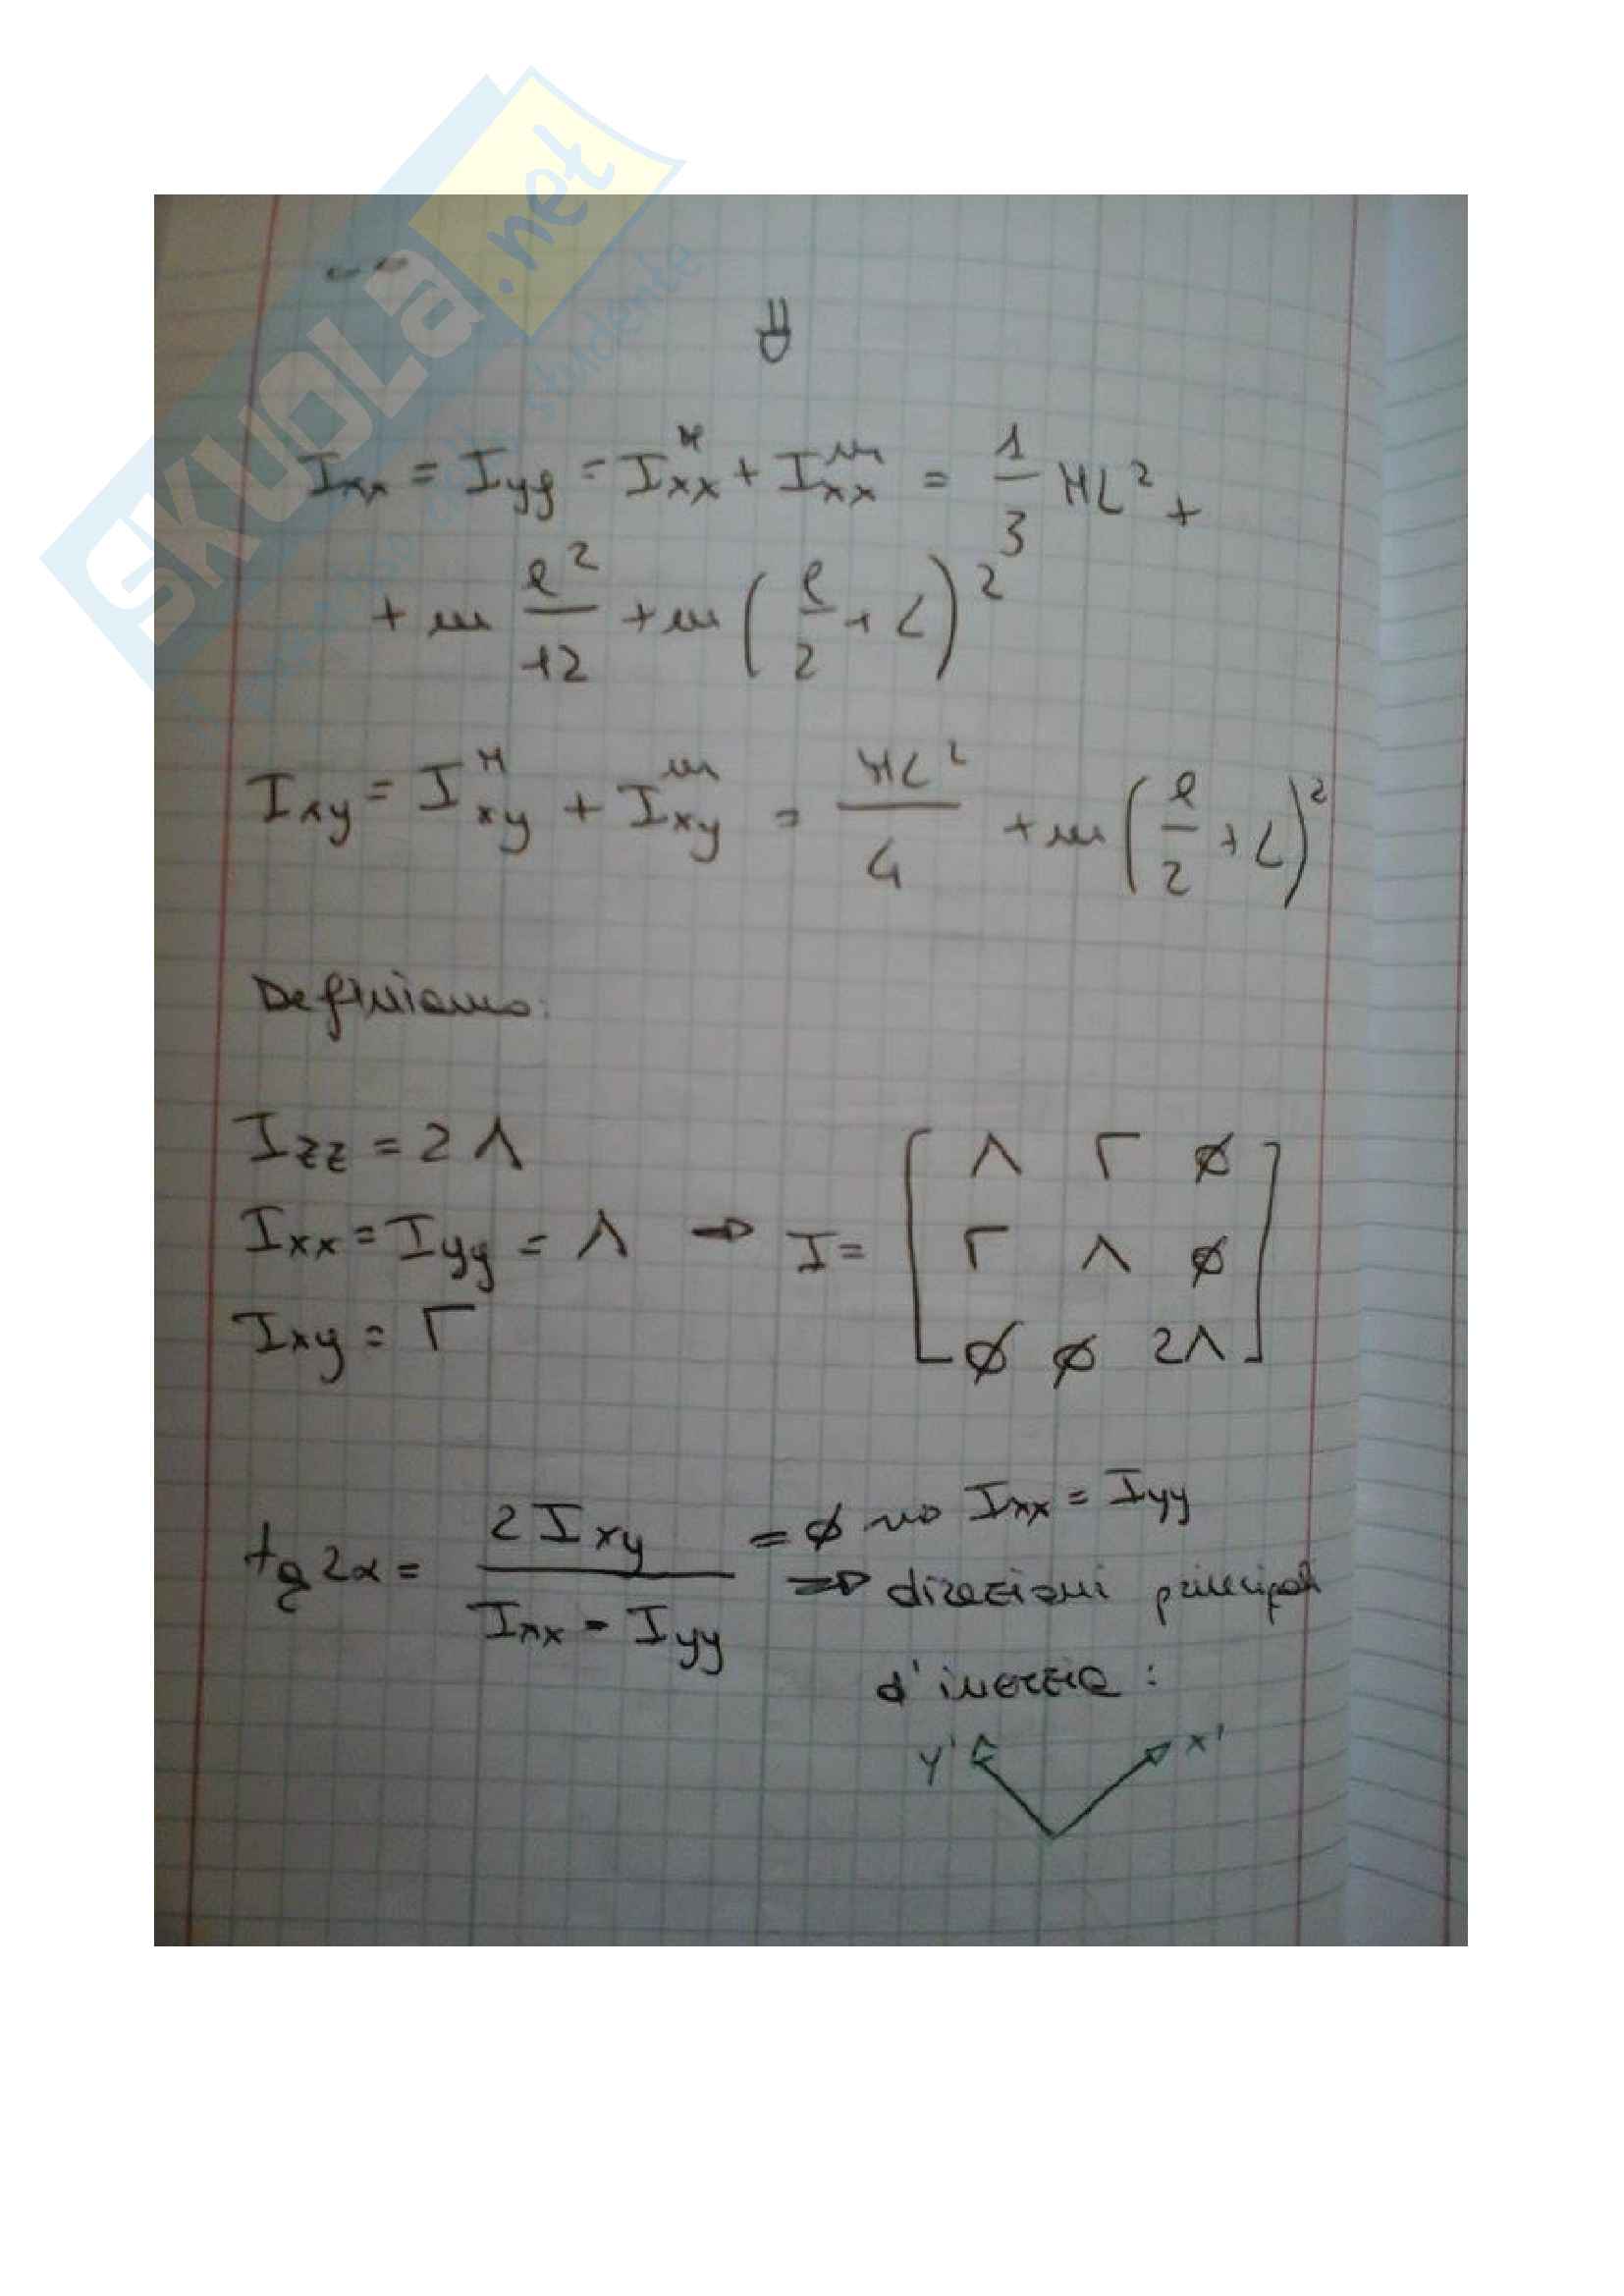 SKUOLA.net
⇓
Ixx = Iyy = Ixx^M + Ixx^m = 1/3 ML² +
+ m ℓ²/12 + m (ℓ/2 + L)²
Ixy = Ixy^M + Ixy^m = ML²/4 + m (ℓ/2 + L)²
Definiamo:
Izz = 2Λ
Ixx = Iyy = Λ ⇒ I = [ Λ Γ ∅
Γ Λ ∅
∅ ∅ 2Λ ]
Ixy = Γ
tg 2α = 2 Ixy / (Ixx - Iyy) = ∅ Ixx = Iyy
⇒ direzioni principali
d'inerzia :
y' x'